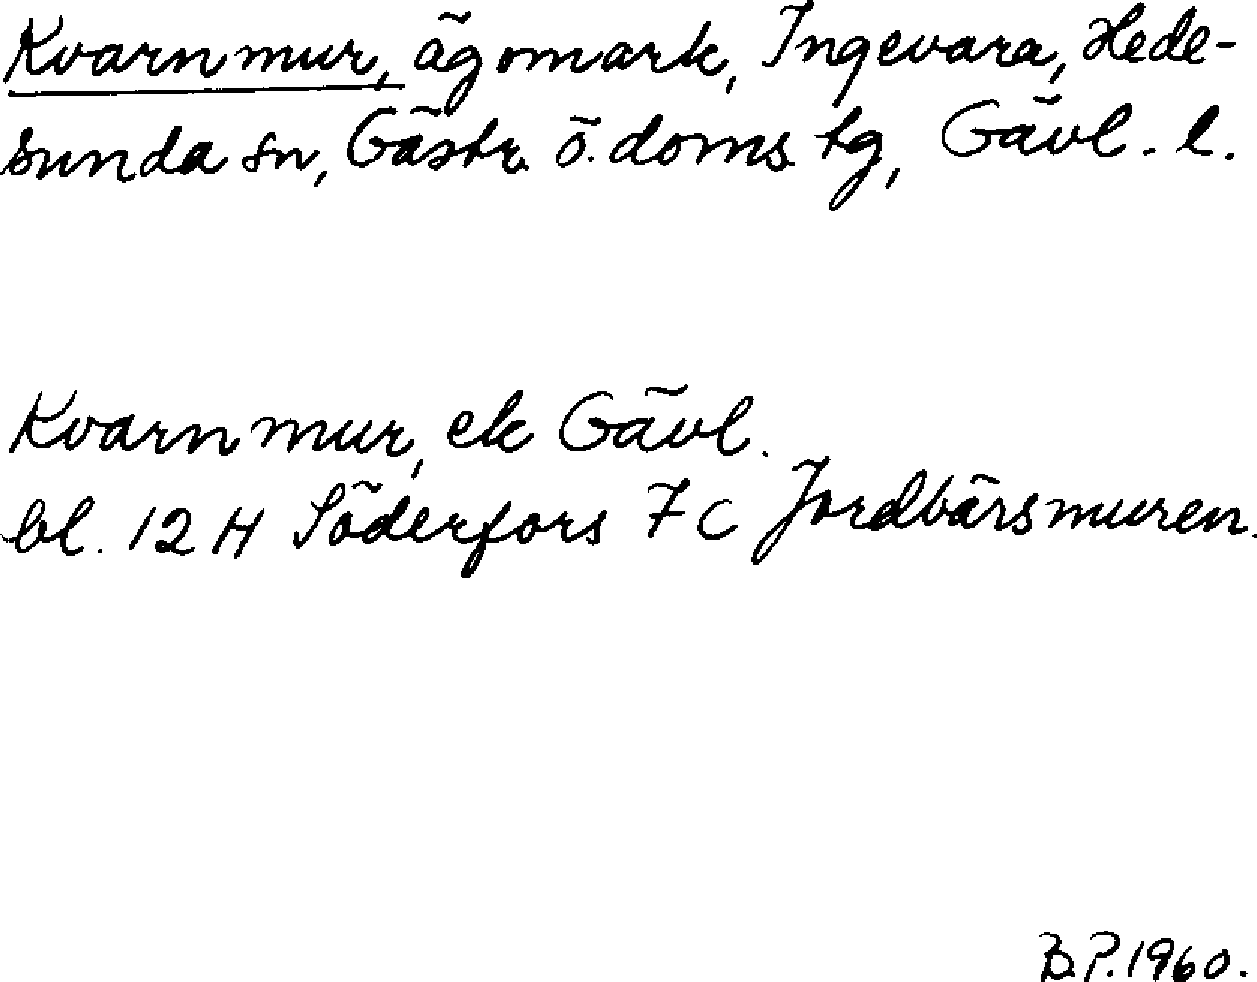 Kvarnmur, ägomark, Ingevara, Hede-
sunda sn, Gästr. ö. doms. tg, Gävl. l.
Kvarnmur, ek Gävl.
bl. 12 H Söderfors 7 c Jordbärsmuren.
B.P. 1960.